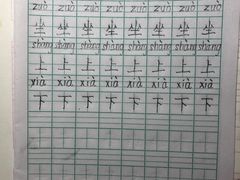 zuò zuò zuò zuò zuò zuò zuò zuò
坐 坐 坐 坐 坐 坐 坐 坐
shàng shàng shàng shàng shàng shàng shàng shàng
上 上 上 上 上 上 上 上
xià xià xià xià xià xià xià xià
下 下 下 下 下 下 下 下